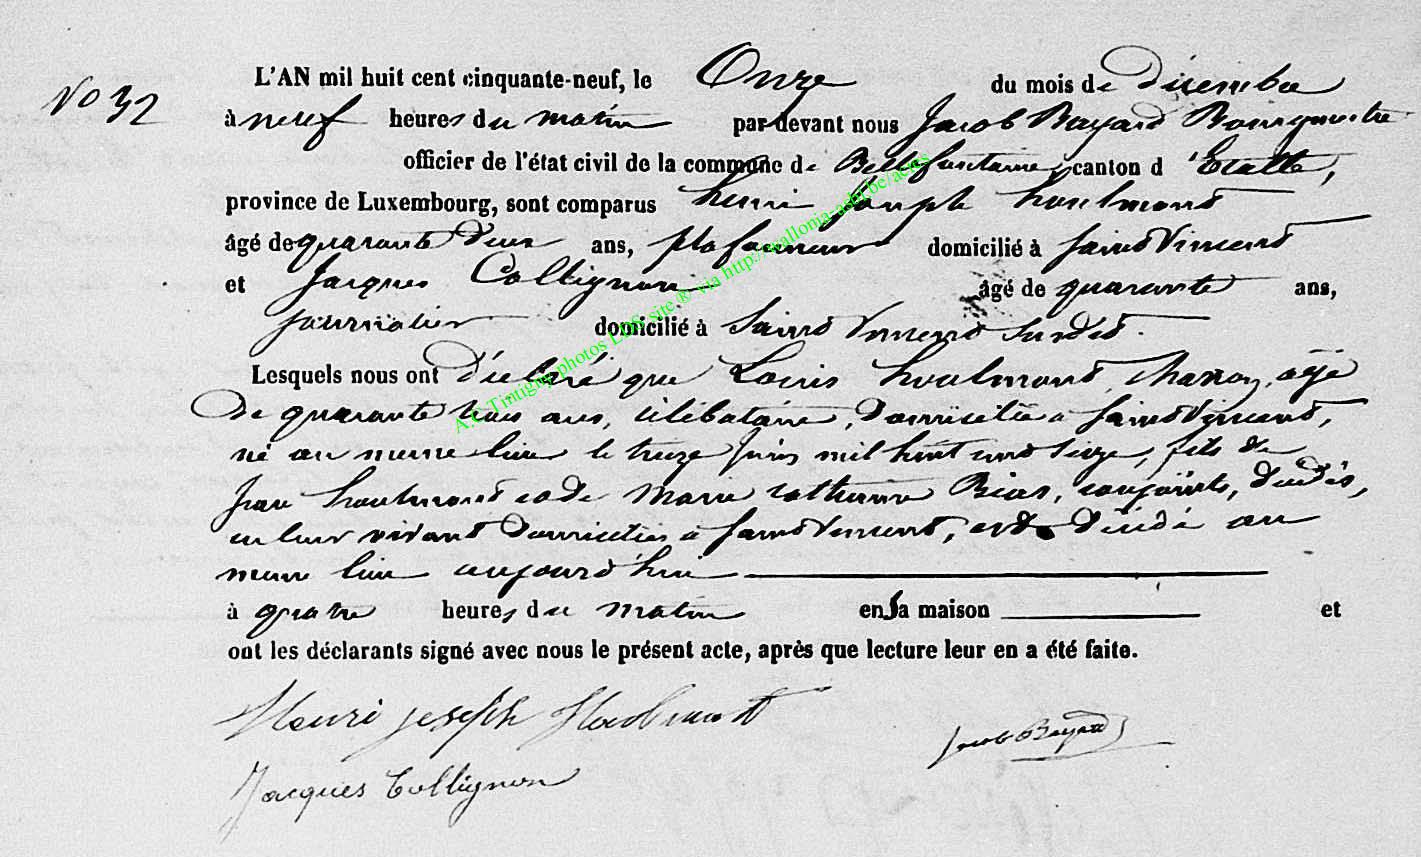 No 32
L'AN mil huit cent cinquante-neuf, le Onze du mois de Décembre
à neuf heures du matin par devant nous Jacob Bayard Bourgmestre
officier de l'état civil de la commune de Bellefontaine, canton d'Etalle,
province de Luxembourg, sont comparus henri Joseph houlmont
âgé de quarante deux ans, plafonneur domicilié à Saint Vincent
et Jacques Collignon âgé de quarante ans,
journalier domicilié à Saint Vincent susdit.
Lesquels nous ont Déclaré que Louis houlmont, Maçon, âgé
De quarante trois ans, célibataire, Domicilié à Saint Vincent,
né au meme lieu le treize Juin mil huit cent seize, fils de
Jean houlmont et de Marie Catherine, conjoints, Décédés,
en leur vivant Domiciliés à Saint Vincent, est Décédé au
meme lieu aujourd'hui
à quatre heures du matin en sa maison et
ont les déclarants signé avec nous le présent acte, après que lecture leur en a été faite.
Henri joseph Houlmont
Jacob Bayard
Jacques Collignon
A.C. Tintigny photos LDS site ® via http://wallonia-asbl.be/actes